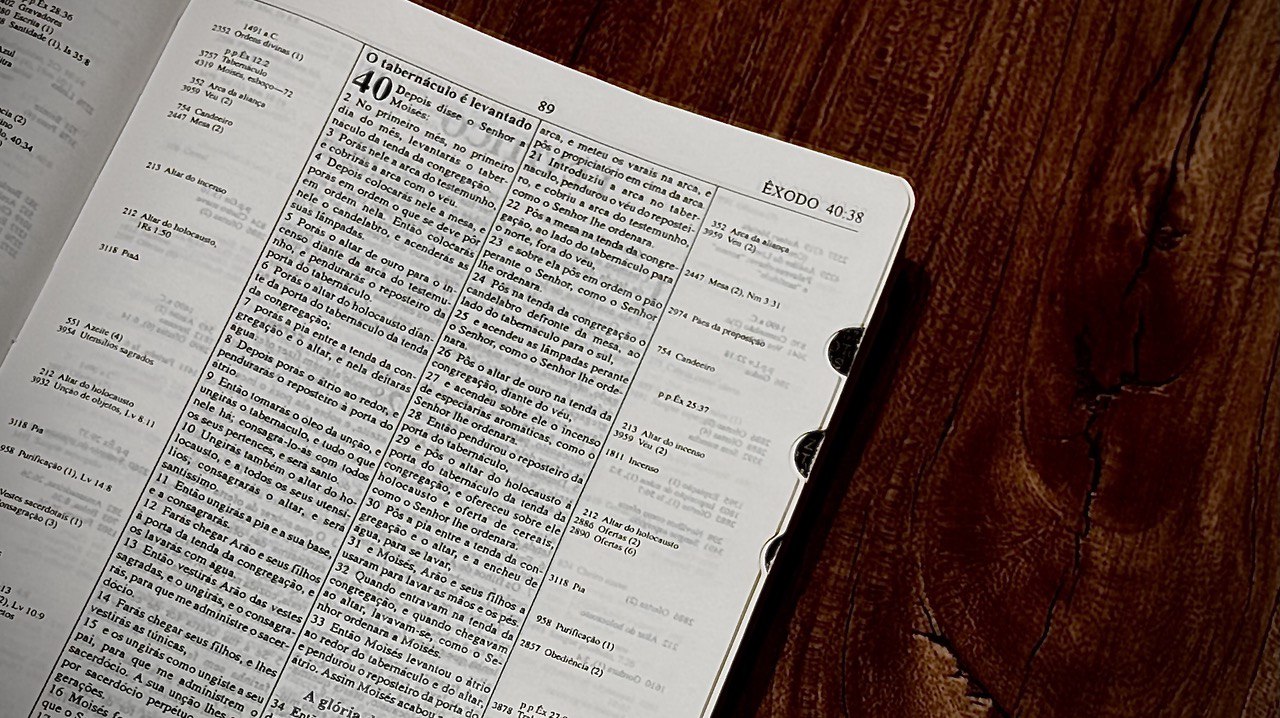 Êx 28.36
Gravadores
Escrita (1)
Santidade (1), Is 35.8
89
ÊXODO 40:38
1491 a.C.
2352 Ordens divinas (1)
p.p Êx 12:2
3757 Tabernáculo
4319 Moisés, esboço—72
352 Arca da aliança
3959 Véu (2)
754 Candeeiro
2447 Mesa (2)
213 Altar do incenso
212 Altar do holocausto,
1Rs 1.50
3118 Pia
551 Azeite (4)
3954 Utensílios sagrados
212 Altar do holocausto
3932 Unção de objetos, Lv 8.11
3118 Pia
958 Purificação (1), Lv 14.8
Vestes sacerdotais (1)
Consagração (3)
O tabernáculo é levantado
40 Depois disse o Senhor a
Moisés:
2 No primeiro mês, no primeiro
dia do mês, levantarás o taber-
náculo da tenda da congregação.
3 Porás nele a arca do testemunho,
e cobrirás a arca com o véu.
4 Depois colocarás nele a mesa, e
porás em ordem o que se deve pôr
em ordem nela. Então colocarás
nele o candelabro, e acenderás as
suas lâmpadas.
5 Porás o altar de ouro para o in-
censo diante da arca do testemu-
nho, e pendurarás o reposteiro da
porta do tabernáculo.
6 Porás o altar do holocausto dian-
te da porta do tabernáculo da tenda
da congregação;
7 porás a pia entre a tenda da con-
gregação e o altar, e nela deitarás
água.
8 Depois porás o átrio ao redor, e
pendurarás o reposteiro à porta do
átrio.
9 Então tomarás o óleo da unção, e
ungirás o tabernáculo, e tudo o que
nele há; consagra-lo-ás com todos
os seus pertences, e será santo.
10 Ungirás também o altar do ho-
locausto, e a todos os seus utensí-
lios; consagrarás o altar, e será
santíssimo.
11 Então ungirás a pia e a sua base,
e a consagrarás.
12 Farás chegar Arão e seus filhos
à porta da tenda da congregação, e
os lavarás com água.
13 Então vestirás Arão das vestes
sagradas, e o ungirás, e o consagra-
rás, para que me administre o sacer-
dócio.
14 Farás chegar seus filhos, e lhes
vestirás as túnicas,
15 e os ungirás como ungiste a seu
pai, para que me administrem o
sacerdócio. A sua unção lhes
por sacerdócio perpétuo
gerações.
16 Moisés
que o
arca, e meteu os varais na arca, e
pôs o propiciatório em cima da arca
21 Introduziu a arca no taber-
náculo, pendurou o véu do repostei-
ro, e cobriu a arca do testemunho,
como o Senhor lhe ordenara.
22 Pôs a mesa na tenda da congre-
gação, ao lado do tabernáculo para
o norte, fora do véu,
23 e sobre ela pôs em ordem o pão
perante o Senhor, como o Senhor
lhe ordenara.
24 Pôs na tenda da congregação o
candelabro defronte da mesa, ao
lado do tabernáculo para o sul,
25 e acendeu as lâmpadas perante
o Senhor, como o Senhor lhe orde-
nara.
26 Pôs o altar de ouro na tenda da
congregação, diante do véu,
27 e acendeu sobre ele o incenso
de especiarias aromáticas, como o
Senhor lhe ordenara.
28 Então pendurou o reposteiro da
porta do tabernáculo,
29 e pôs o altar do holocausto à
porta do tabernáculo da tenda da
congregação, e ofereceu sobre ele
holocausto, e oferta de cereais,
como o Senhor lhe ordenara.
30 Pôs a pia entre a tenda da con-
gregação e o altar, e a encheu de
água, para se lavar,
31 e Moisés, Arão e seus filhos a
usaram para lavar as mãos e os pés.
32 Quando entravam na tenda da
congregação, e quando chegavam
ao altar, lavavam-se, como o Se-
nhor ordenara a Moisés.
33 Então Moisés levantou o átrio
ao redor do tabernáculo e do altar,
e pendurou o reposteiro da porta do
átrio. Assim Moisés acabou
A glória
34
352 Arca da aliança
3959 Véu (2)
2447 Mesa (2), Nm 3.31
2974 Pães da preposição
754 Candeeiro
p.p Êx 25.37
213 Altar do incenso
3959 Véu (2)
1811 Incenso
212 Altar do holocausto
2886 Ofertas (2)
2890 Ofertas (6)
3118 Pia
958 Purificação (1)
2857 Obediência (2)
p.p Êx 27.9
3878